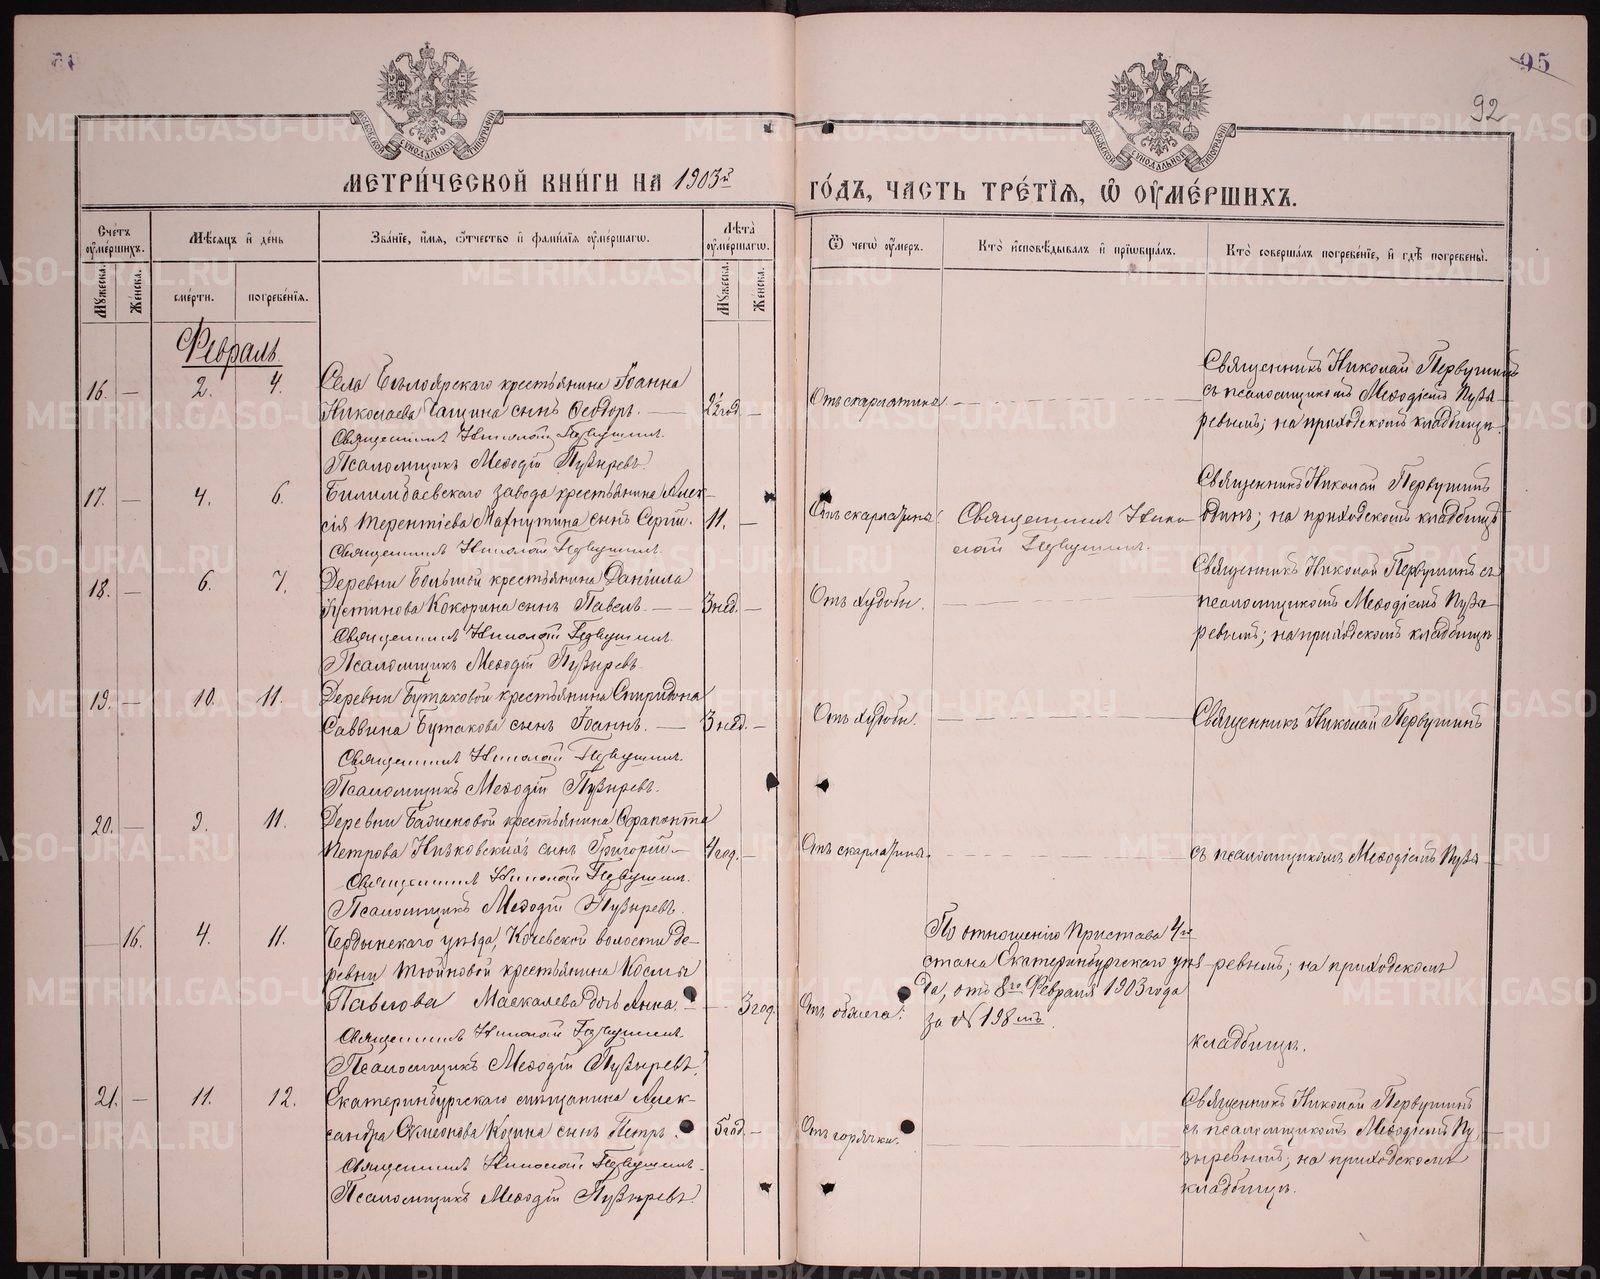 95
92
МЕТРИ́ЧЕСКОЙ КНИ́ГИ НА 1903й
ГО́ДЪ, ЧАСТЬ ТРЕ́ТІѦ, Ѿ ОУ҆МЕ́РШИХЪ.
Сче́тъ оумершихъ.
Мѣсяцъ и день
Званіе, имя, отчество и фамилія умершаго.
Лѣта умершаго.
Отъ чего умеръ.
Кто исповѣдывалъ и пріобщалъ.
Кто совершалъ погребеніе, и гдѣ погребены.
Мужеска.
Женска.
смерти.
погребенія.
Мужеска.
Женска.
Февраль
16. — 2. 4.
Села Бѣлоярскаго крестьянина Іоанна
Николаева сынъ Ѳеодоръ. — 2½ год. —
Отъ скарлатины
Священникъ Николай Первушинъ
съ псаломщикомъ Меѳодіемъ Пузы-
ревымъ; на приходскомъ кладбищѣ.
Священникъ Николай Первушинъ.
Псаломщикъ Меѳодій Пузыревъ.
17. — 4. 6.
Билимбаевскаго завода крестьянина Алек-
сія Терентіева Махнутина сынъ Сергій. 11. —
Отъ скарлатины.
Священникъ Нико-
лай Первушинъ.
Священникъ Николай Первушинъ
одинъ; на приходскомъ кладбищѣ
Священникъ Николай Первушинъ.
18. — 6. 7.
Деревни Большой крестьянина Даніила
Іустинова Кокорина сынъ Павелъ. — 3 нед. —
Отъ худобы.
Священникъ Николай Первушинъ съ
псаломщикомъ Меѳодіемъ Пузы-
ревымъ; на приходскомъ кладбищѣ.
Священникъ Николай Первушинъ.
Псаломщикъ Меѳодій Пузыревъ.
19. — 10. 11.
Деревни Бутаковой крестьянина Спиридона
Саввина Бутакова сынъ Іоаннъ. — 3 нед. —
Отъ худобы.
Священникъ Николай Первушинъ
Священникъ Николай Первушинъ.
Псаломщикъ Меѳодій Пузыревъ.
20. — 9. 11.
Деревни крестьянина Ѳерапонта
Петрова сынъ Григорій. — 4 год. —
Отъ скарлатины.
съ псаломщикомъ Меѳодіемъ Пузы-
Священникъ Николай Первушинъ.
Псаломщикъ Меѳодій Пузыревъ.
— 16. 4. 11.
Чердынскаго уѣзда, Кочевской волости де-
ревни Тюйновой крестьянина Космы
Павлова Маскалева дочь Анна. — 3 год.
Отъ обжега.
По отношенію Пристава 4го
стана Екатеринбургскаго уѣз-
да, отъ 8го Февраля 1903 года
за № 198мъ.
ревымъ; на приходскомъ
кладбищѣ.
Священникъ Николай Первушинъ.
Псаломщикъ Меѳодій Пузыревъ.
21. — 11. 12.
Екатеринбургскаго мѣщанина Алек-
сандра Симеонова Козина сынъ Петръ. 5 год. —
Отъ горячки.
Священникъ Николай Первушинъ
съ псаломщикомъ Меѳодіемъ Пу-
зыревымъ; на приходскомъ
кладбищѣ.
Священникъ Николай Первушинъ.
Псаломщикъ Меѳодій Пузыревъ.
METRIKI.GASO-URAL.RU